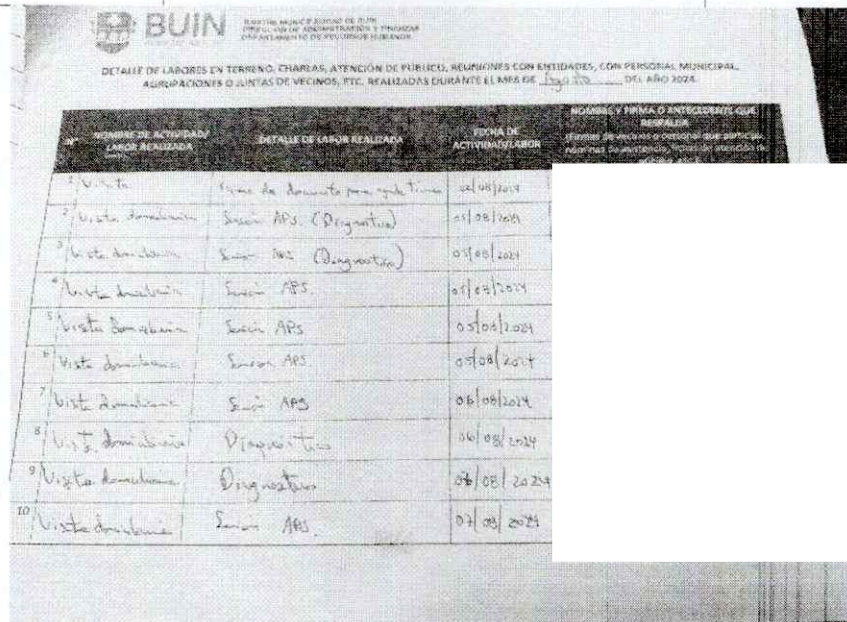 BUIN
ILUSTRE MUNICIPALIDAD DE BUIN
DIRECCIÓN DE ADMINISTRACIÓN Y FINANZAS
DEPARTAMENTO DE RECURSOS HUMANOS
DETALLE DE LABORES EN TERRENO, CHARLAS, ATENCIÓN DE PÚBLICO, REUNIONES CON ENTIDADES, CON PERSONAL MUNICIPAL,
AGRUPACIONES O JUNTAS DE VECINOS, ETC. REALIZADAS DURANTE EL MES DE Agosto DEL AÑO 2024.
N° NOMBRE DE ACTIVIDAD/ LABOR REALIZADA DETALLE DE LABOR REALIZADA FECHA DE ACTIVIDAD/LABOR NOMBRE Y FIRMA O ANTECEDENTE QUE RESPALDA
1 Visita de documento para 02/08/2024
2 Visita domiciliaria Sesión APS. (Diagnostico) 05/08/2024
3 Visita domiciliaria Sesión APS (Diagnostico) 05/08/2024
4 Visita domiciliaria Sesión APS. 05/08/2024
5 Visita domiciliaria Sesión APS 05/08/2024
6 Visita domiciliaria Sesión APS. 05/08/2024
7 Visita domiciliaria Sesión APS 06/08/2024
8 Visita domiciliaria Diagnostico 06/08/2024
9 Visita domiciliaria Diagnostico 06/08/2024
10 Visita domiciliaria Sesión APS. 07/08/2024